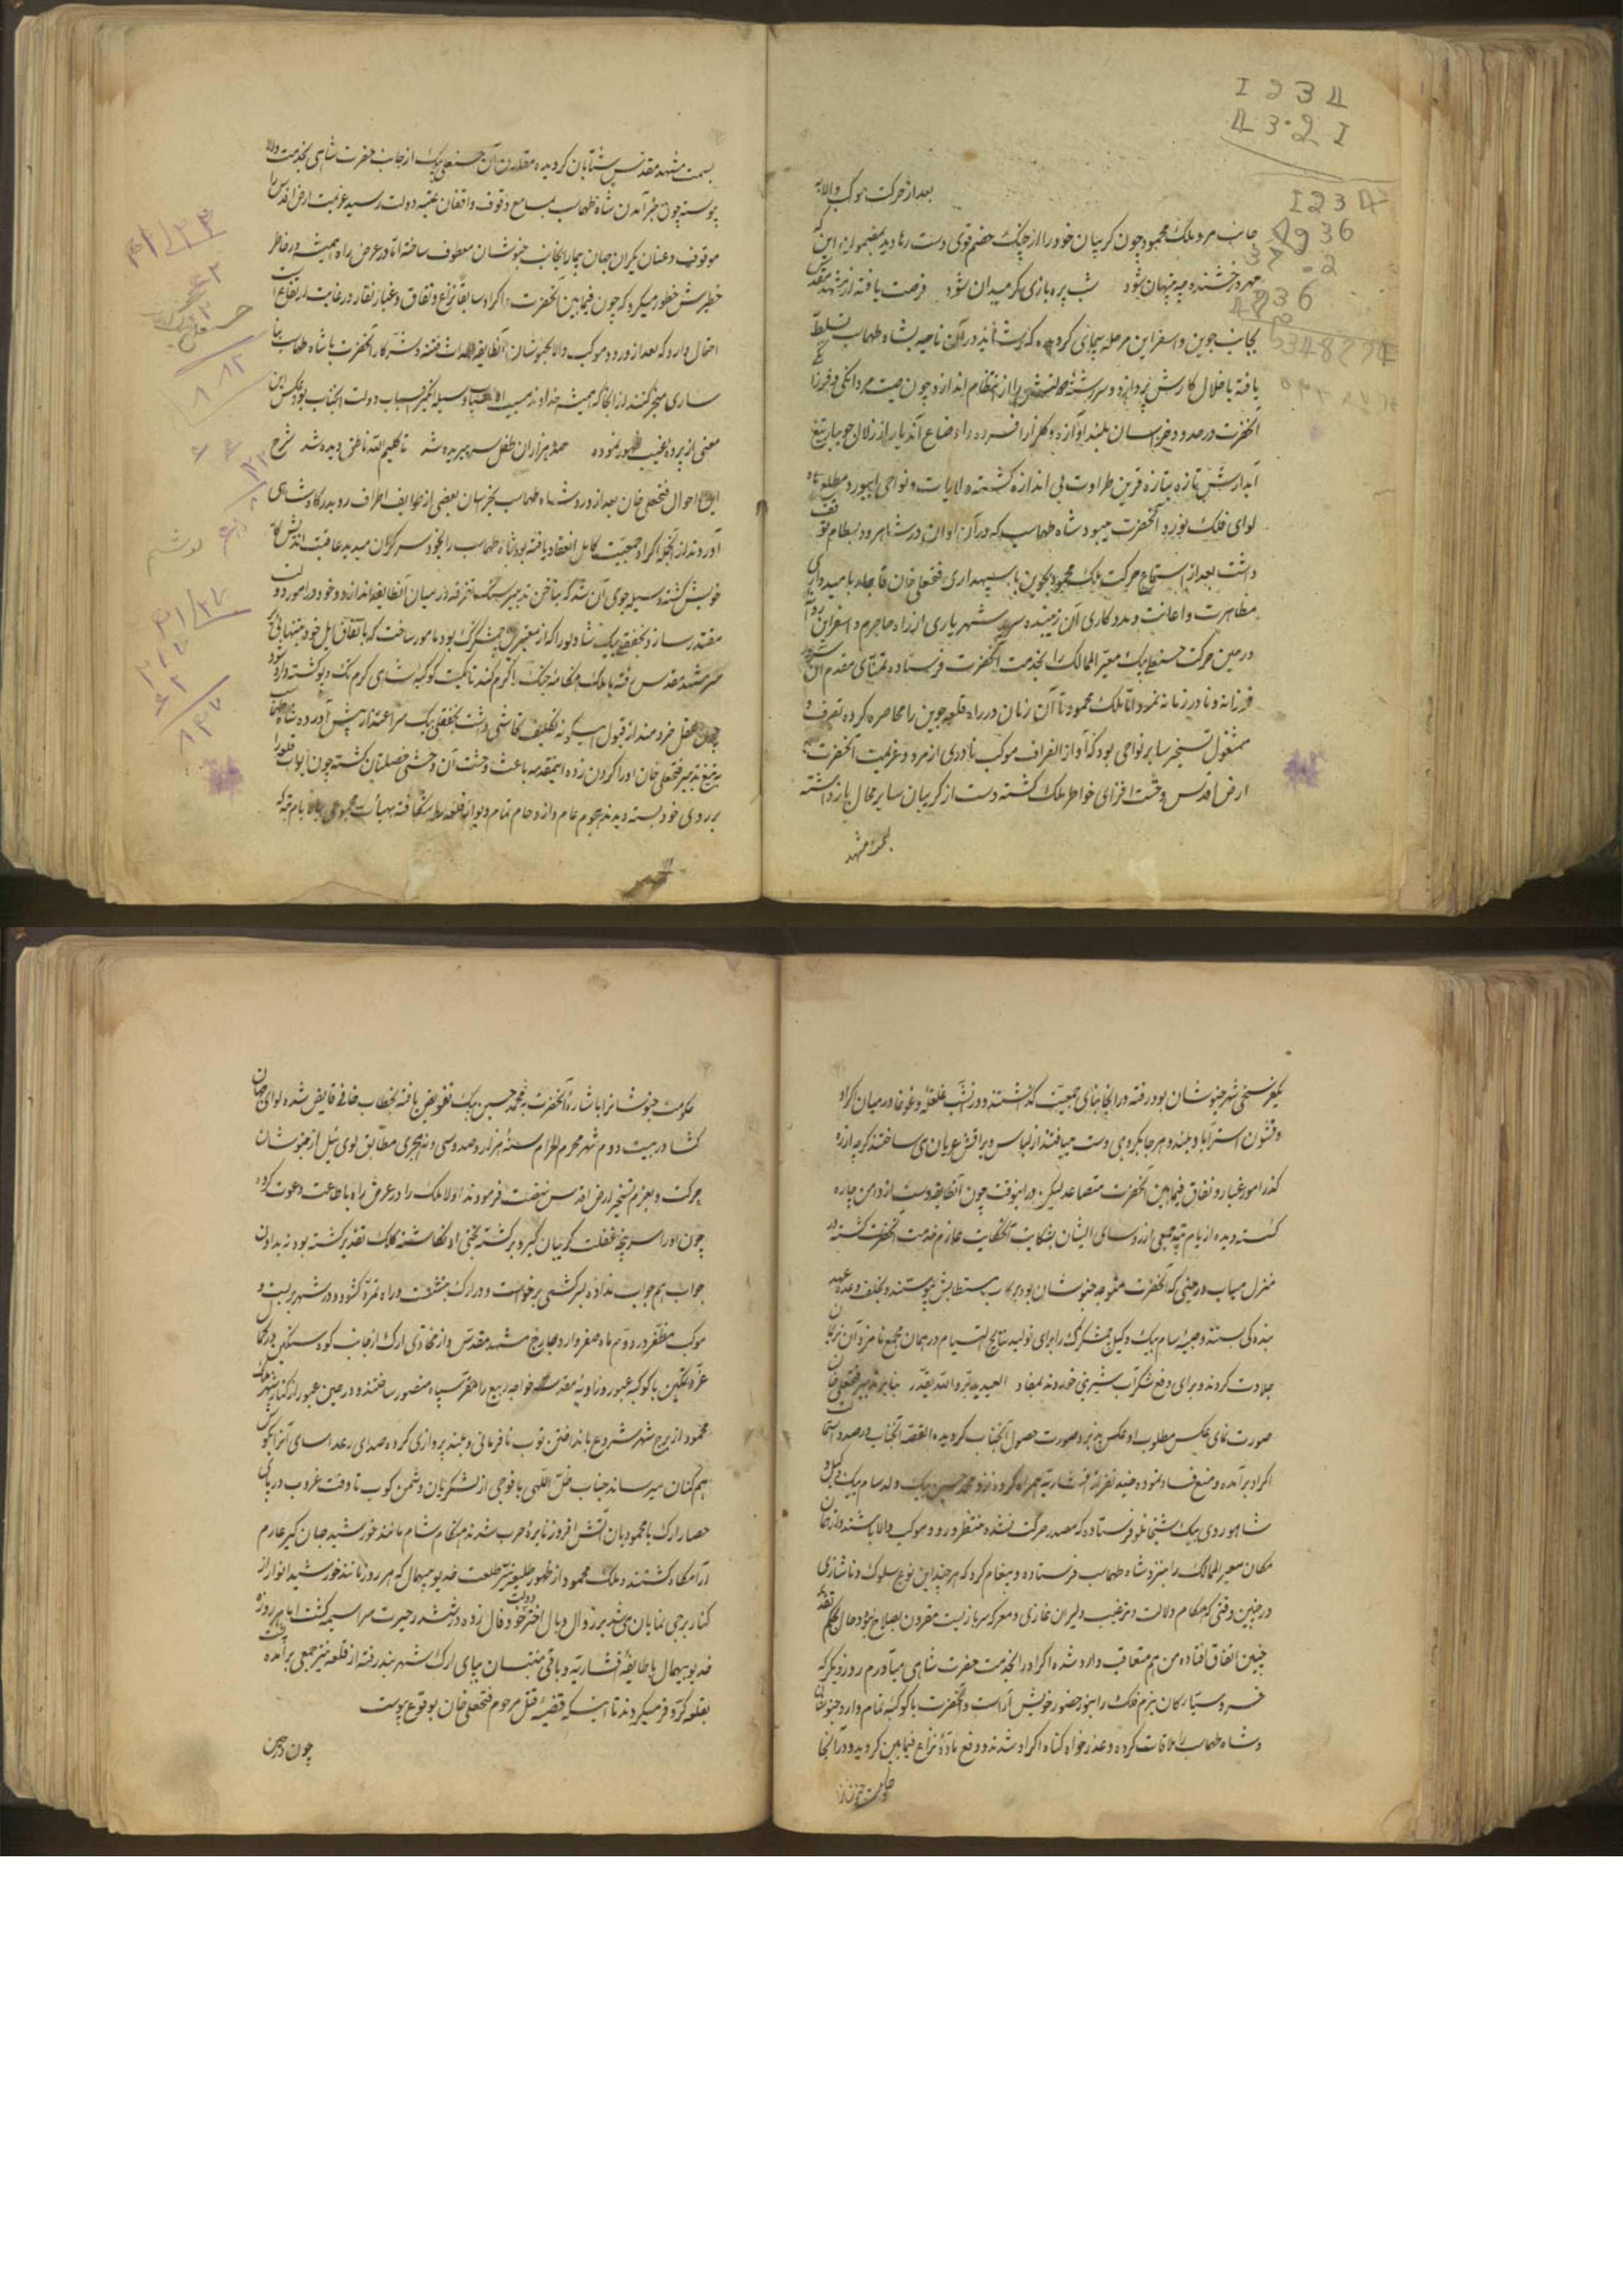 1 2 3 4
4 3 2 1
بعد از حرکت موکب والا به
جانب مرو ملک محمود چون کریبان خود را از چنک خصم قوی دست رها دید بمضمون این که
مهر درخشنده چو پنهان شود شب پره بازی کر میدان شود فرصت یافته از مشهد مقدس
بجانب جوین و اسفراین مرحله پیمای کردیده که شاید در آن ناحیه بشاه طهماسب تسلط
یافته باخلال کارش پردازد و سررشته دولتش را از انتظام اندازد چون صیت مردانکی و فر
آنحضرت در حدود خراسان بلند آوازه و کلزار افسرده اوضاع آندیار از زلال جویبار تیغ
آبدارش تازه بتازه قرین طراوت بی اندازه کشته ولایات و نواحی ابیورد مطلع ماه
لوای فلک نورد آنحضرت میبود شاه طهماسب که در آن اوان در شاهرود بسطام توقف
داشت بعد از استماع حرکت ملک محمود بجوین با سپهداری فتحعلی خان قاجار بامیدواری
مظاهرت و اعانت و مددکاری آن زیبنده سریر شهریاری از راه جاجرم و اسفراین
در حین حرکت حسنعلی بیک معیر الممالک را بخدمت آنحضرت فرستاده تمنای مقدم آن سرور
فرزانه و نادر زمانه نمود اما ملک محمود تا آن زمان در راه قلعه جوین را محاصره کرده تصرف و
مشغول تسخیر سایر نواحی بود که آواز انصراف موکب نادری از مرو و عزیمت آنحضرت
ارض اقدس وحشت افزای خاطر ملک کشته دست از کریبان سایر محال بازداشته
بسمت مشهد مقدس شتابان کردیده مقارن آن حسنعلی بیک از جانب حضرت شاهی بخدمت والا
پیوسته چون خبر آمدن شاه طهماسب بمسامع وقوف واقفان عتبه دولت رسید عزیمت ارض اقدس را
موقوف و عنان یکران جهان پیما را بجانب خبوشان معطوف ساخته اما در عرض راه همیشه در خاطر
خطیرش خطور میکرد که چون فیمابین آنحضرت و اکراد سابقا نزاع و نفاق و غبار نقار در غایت ارتفاع است
احتمال دارد که بعد از ورود موکب والا بخبوشان آنطایفه احداث فتنه در سر کار آنحضرت با شاه طهماسب
ساری منجر کنند از آنجا که همیشه خداوند مسبب الاسباب وسیله انکیز اسباب دولت آنجناب بود عکس این
معنی از پرده غیب ظهور نموده صد هزاران طفل سر ببریده شد تا کلیم الله ناطق دیده شد شرح
این احوال فتحعلی خان بعد از ورود شاه طهماسب بخراسان بعضی از طوایف اطراف رو بدرکاه شاهی
آوردند از آنجمله اکراد جمعیت کامل انعقاد یافته بود شاه طهماسب را بخود سر کران میدید عاقبت اندیش کار
خویش کشته وسیله جوی آن شد که بناخن تدبیر سنک تفرقه در میان آنطایفه اندازد و خود در امور دولت
مقتدر سازد نجفقلی بیک شادلو را که از معتبرین چمشکزک بود مامور ساخت که باتفاق ایل خود بتنهایی
بر سر مشهد مقدس رفته با ملک هنکامه جنک را کرم کند تا کمیت کوکبه شاهی کرم تک و پو کشته وارد شود
چون عقل خردمند از قبول اینکونه تکلیف تحاشی داشت نجفقلی بیک سر اعتذار پیش آورده شاه طهماسب
به تیغ تدبیر فتحعلی خان او را کردن زده اینمقدمه باعث وحشت آن وحشی خصلتان کشته چون ابواب قلعه را
بر روی خود بسته دیدند هجوم عام و ازدحام تمام دیوار قلعه را شکافته بهیات مجموعی ببالا بام تپه که
یکفرسخی شهر خبوشان بود رفته در آنجا بنای جمعیت کذاشتند و در آنشب غلغله و غوغا در میان اکراد
و قشون استرآباد بلند و هر جا بکروهی دست مییافتند از لباس و یراقش عریان می ساختند کرچه از ره
کذر امور غبار و نفاق فیمابین آنحضرت متصاعد لیکن در اینوقت چون آنطایفه دست از دامن چاره
کسسته دیده از بام تپه جمعی از رؤسای ایشان بشکایت آنحکایت عازم خدمت آنحضرت کشته در
منزل میاب در حینی که آنحضرت متوجه خبوشان بود برکاب مستطابش پیوستند و بحلف و عهد
بنده کی بستند و صبیه سام بیک وکیل چمشکزک را برای تولید نتایج التیام در همان مجمع نامزد آن
جلادت کردند و برای دفع شکراب شیرینی خوردند بمفاد العبد یدبر والله یقدر بنا بر تدبیر فتحعلی خان
صورت نمای عکس مطلوب او عکس پذیر و صورت حصول آنجناب کردیده القصه آنجناب در صدد استمالت
اکراد بر آمده و منع فساد نموده چند نفر از افشاریه همراه کرده نزد محمد حسین بیک ولد سام بیک وکیل و
شاهوردی بیک شیخانلو فرستاده که مصدر حرکت نشده منتظر ورود موکب والا باشند و از همان
مکان معیر الممالک را بنزد شاه طهماسب فرستاده و پیغام کرد که هر چند این نوع سلوک و ناشناسی
در چنین وقتی که هنکام دلالت و ترغیب دلیران غازی و معرکه سربازیست مقرون بصلاح نبود حال بحکم تقدیر
چنین اتفاق افتاده من هم متعاقب وارد شده اکراد را بخدمت حضرت شاهی میآورم روز دیکر که
خسرو سیارکان بزم فلک را بنور حضور خویش آراست و آنحضرت با کوکبه تمام وارد خبوشان
و شاه طهماسب را ملاقات کرده و عذرخواه کناه اکراد شدند و رفع ماده نزاع فیمابین کردید و در آنجا
حکومت خبوشانرا باشاره آنحضرت به محمد حسین بیک تفویض یافته بخطاب خانی فایض شده لوای جهان
کشا در بیست دوم شهر محرم الحرام سنه هزار و صد و سی و نه هجری مطابق یوی ییل از خبوشان
حرکت و بعزم تسخیر ارض اقدس نهضت فرمودند اولا ملک را در عرض راه باطاعت دعوت کرده
چون او را سر پنجه غفلت کریبان کیر و برکشته بختی او نکاشته کلک تقدیر کشته بود نه بدادن
جواب هم جواب نداده بسرکشی برخواست و در ارک بنشست و راه تمرد کشود و در شهر بست و
موکب مظفر در دوم ماه صفر وارد خارج مشهد مقدس و از محاذی ارک از جانب کوه سنکین
با کوکبه عبور و زاویه مقدسه خواجه ربیع را مقر سپاه منصور ساختند و در حین عبور از کنار شهر ملک
محمود از برج شهر شروع بانداختن توب نافرمانی و بلند پروازی کرده صدای رعد آسای آنرا بکوش
هم کنان میرساند جناب ظل اللهی با فوجی از لشکریان دشمن کوب تا وقت غروب در پای
حصار ارک با محمودیان آتش افروز نایره حرب شدند هنکام شام مانند خورشید جهان کیر عازم
آرامکاه کشتند و ملک محمود از ظهور طلیعه طلعت خدیو بیهمال که هر روز مانند خورشید انوار از
کنار برجی نمایان می شد بر زوال و بال اختر دولت خود فال زده در ششدر حیرت سراسیمه کشت اما هر روزه
خدیو بیهمال با طایفه افشاریه و باقی منتسبان بپای ارک شهر بند رفته از قلعه نیز جمعی بر آمده
بقلعه کر و فر میکردند تا اینکه قضیه قتل مرحوم فتحعلی خان بوقوع پیوست
چون در حین